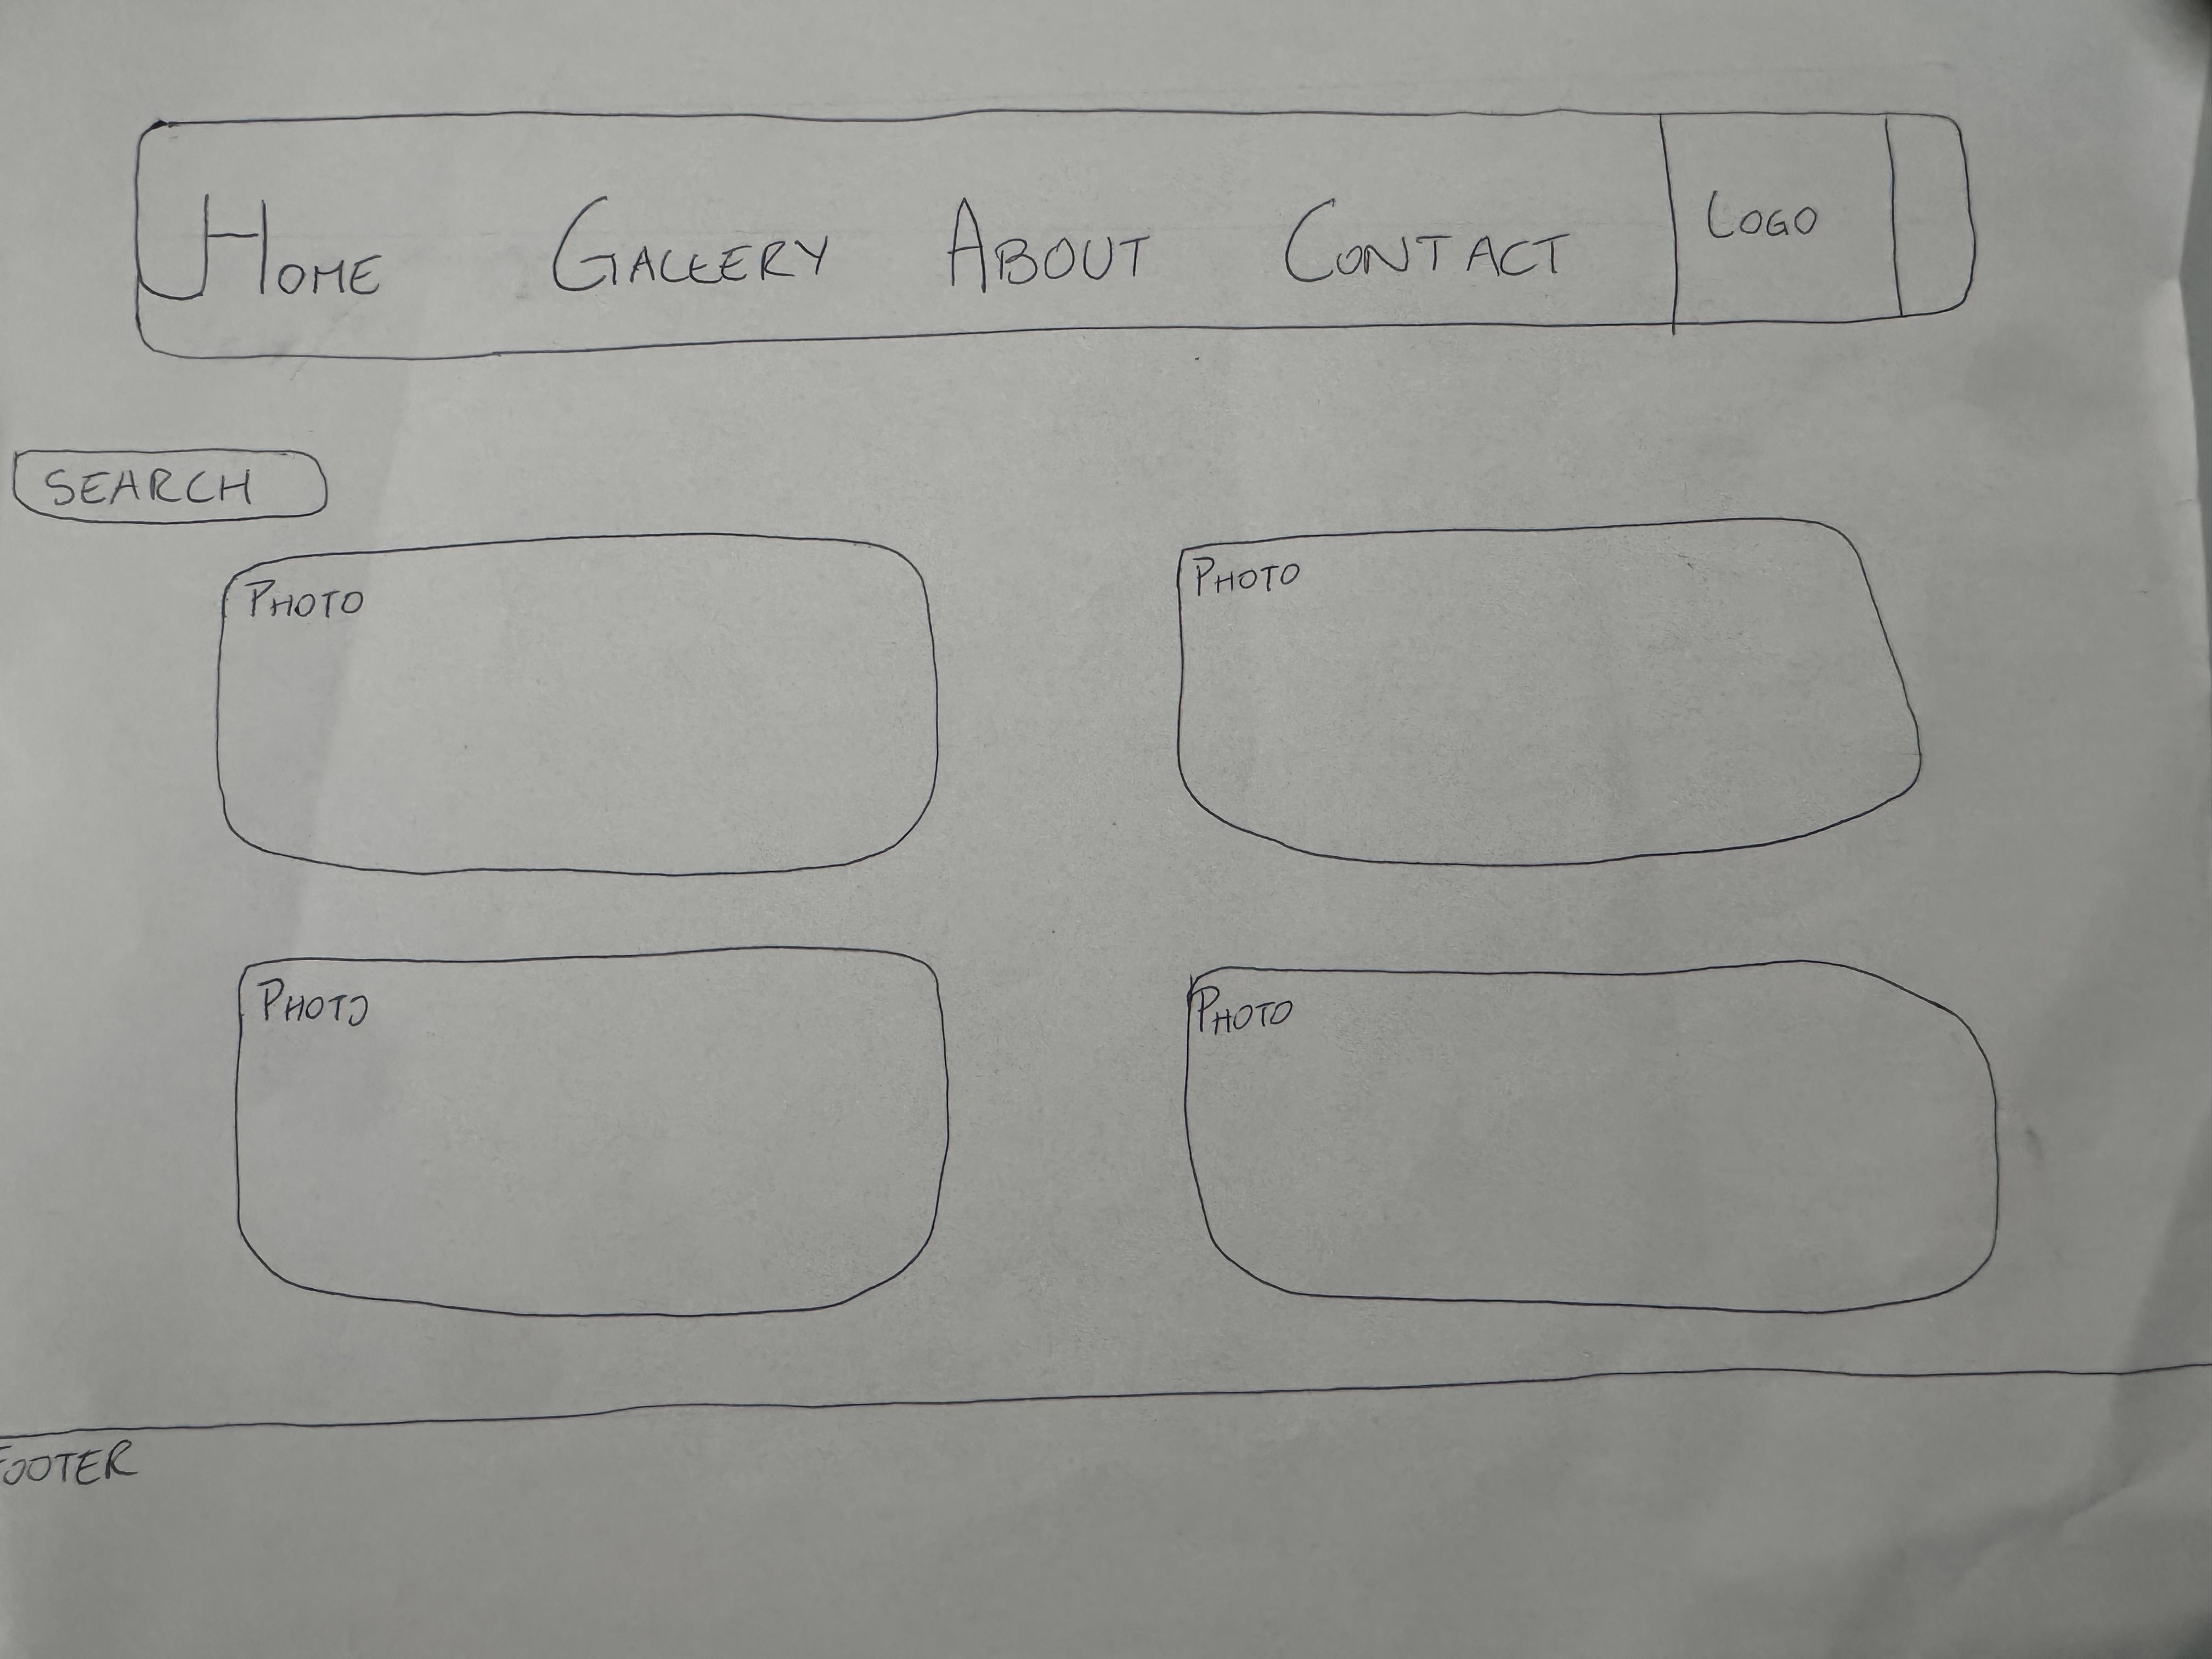 HOME GALLERY ABOUT CONTACT LOGO
SEARCH
PHOTO PHOTO
PHOTO PHOTO
FOOTER